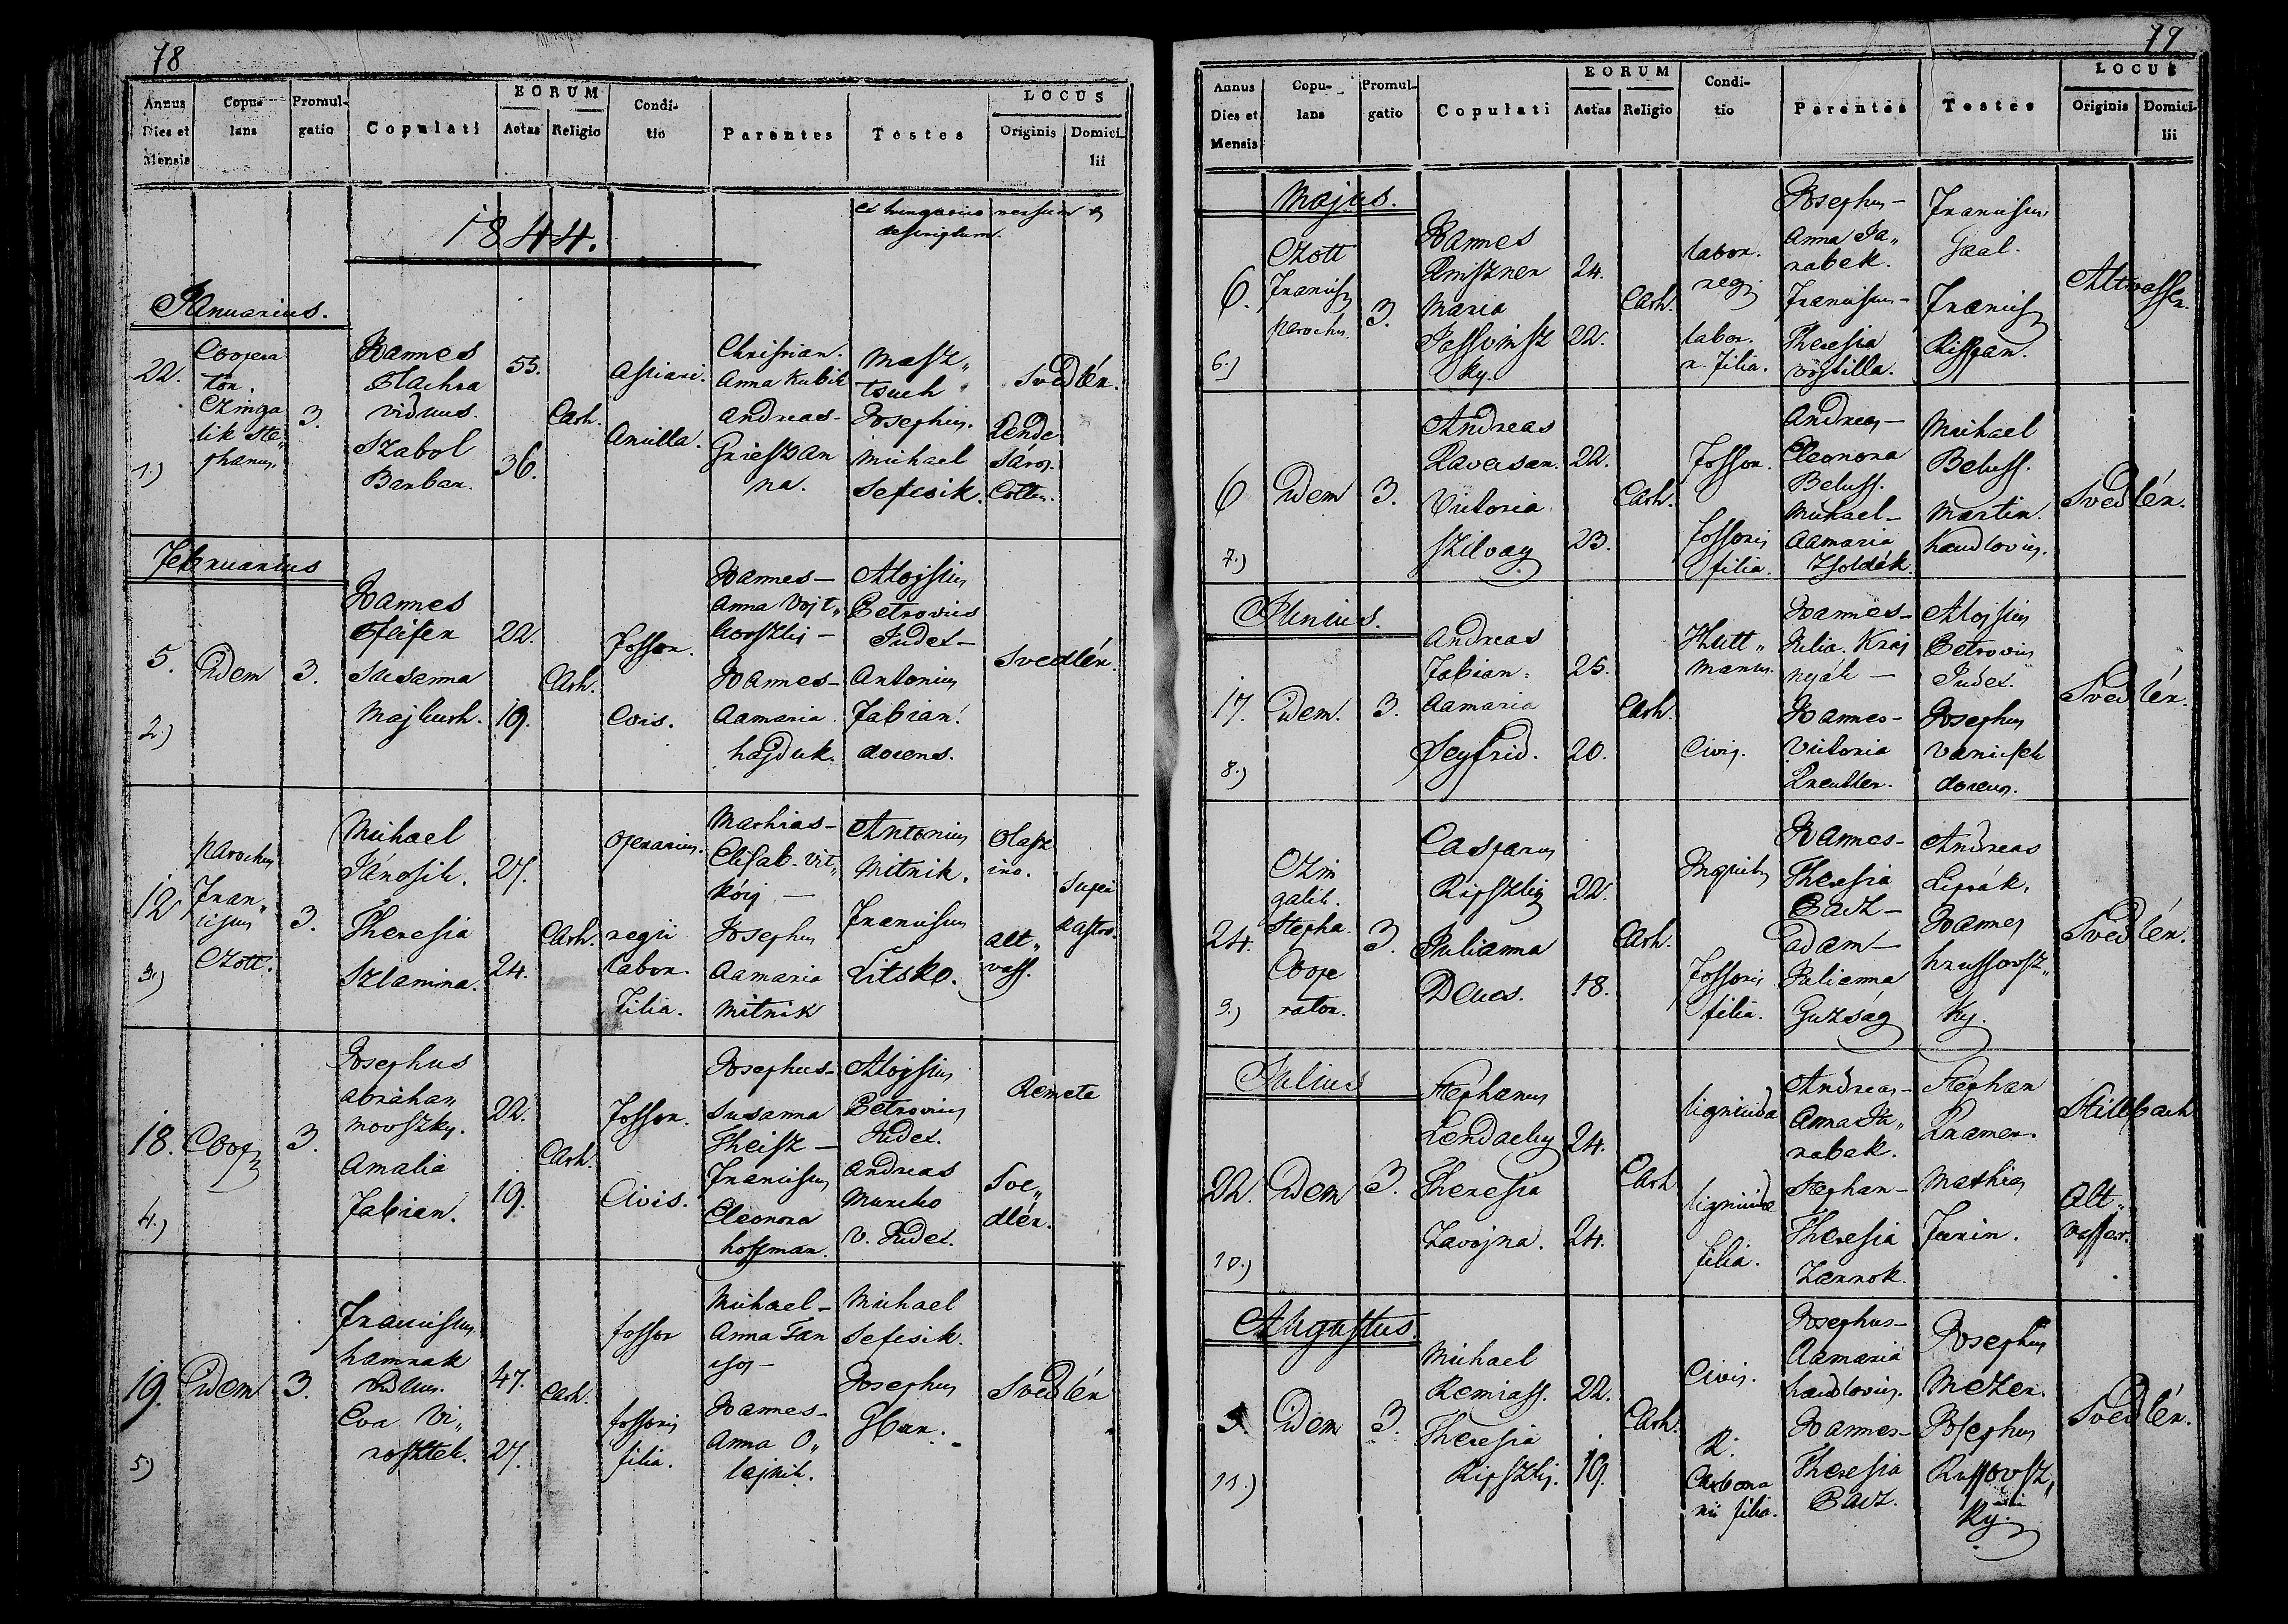 78
Annus
Dies et
Mensis
Copu-
lans
Promul-
gatio
Copulati
EORUM
Aetas
Religio
Condi-
tio
Parentes
Testes
LOCUS
Originis
Domici-
lii
1844.
ex hungarico versum &
descriptum.
Januarius.
22.
1.)
Coopera
tor.
Czinga
lik Ste„
phanus.
3.
Joannes
viduus.
Szabol
Barbar.
55.
36.
Cath.
Ancilla.
Christian.
Anna Kubik
Andreas-
Grieszan
na.
Masz„
tsuch
Josephus.
Michael
Sefcsik.
Svedlér.
Sáros.
Cotten.
Februarius
5.
2.)
Idem
3.
Joannes
Pfeifer
Susanna
Majkuth.
22.
19.
Cath.
Fossor.
Civis.
Joannes-
Anna Vojt„
kovszky-
Joannes-
Aamaria
hajduk.
Alojsius
Petrovics
Judex-
Antonius
Fabian.
docens.
Svedlér.
12
3.)
Parochus
Fran„
ciscus
Czott.
3.
Michael
Jánosik.
Theresia
Szlamina.
27.
24.
Cath.
Operarius.
regii
labor.
filia.
Mathias-
Elisab. Vit„
kóig -
Josephus
Aamaria
Mitnik
Antonius
Mitnik.
Franciscus
Litsko.
Olasz
ino.
alt„
vass.
18.
4.)
Coop
3.
Josephus
Abraham
novszky.
Amalia
Fabian.
22.
19.
Cath.
Fossor.
Civis.
Josephus-
Susanna
Theisz-
Franciscus
Eleonora
hoffman.
Alojsius
Petrovics
Judex.
Andreas
V. Judex.
Remete
Sve„
dlér.
19.
5)
Idem
3.
Franciscus
hamrak
viduus.
Eva Vi„
rosztek.
47.
27.
Cath.
fossor
fossoris
filia.
Michael-
Anna Tan
Joannes-
Anna O„
lejnik.
Michael
Sefcsik.
Josephus
Svedlér
79
Annus
Dies et
Mensis
Copu-
lans
Promul-
gatio
Copulati
EORUM
Aetas
Religio
Condi-
tio
Parentes
Testes
LOCUS
Originis
Domici-
lii
Majus.
6.
6.)
Czott
Francisc
parochus.
3.
Joannes
Kniszner
Maria
24.
22.
Cath.
labor.
reg.
labor.
r. filia.
Josephus-
Anna Ja„
rabek.
Franciscus-
Theresia
Franciscus
Gaal.
Francisc
Altwasser.
6
7.)
Idem
3.
Andreas
Victoria
Szilvay
22.
23.
Cath.
Fossor.
fossoris
filia.
Andreas-
Eleonora
Beluss.
Michael-
Aamaria
Zsoldák.
Michael
Beluss.
Martin.
handlovics.
Svedlér.
Junius.
17.
8.)
Idem.
3.
Andreas
Fabian.
Aamaria
Seyfrid.
25.
20.
Cath.
Hutt„
mannus.
Civis.
Joannes-
Julia. Kraj
nyák -
Joannes-
Victoria
Kreutter.
Alojsius
Petrovics
Judex.
Josephus
docens.
Svedlér.
24.
9.)
Czin
galik.
Stepha.
Coope
rator.
3.
Casparus
Ripszky
Julianna
22.
18.
Cath.
Inquil.
Fossoris
filia.
Joannes-
Theresia
Pacz-
Adam-
Julianna
Guzság
Andreas
Liptak.
Joannes
hrussovsz„
ky.
Svedlér.
Julius
22.
10.)
Idem
3.
Stephanus
Lendacky
Theresia
Zavojna.
24.
24.
Cath
lignicida
lignicidae
filia.
Andreas-
Stephan-
Theresia
Stephan
Kramer.
Mathias
Stillbach
Alt„
vasser.
Augustus.
11.)
Idem
3.
Michael
Remiass.
Theresia
Ripszky.
22.
19.
Cath.
Civis.
R.
Carbona
rii filia.
Josephus-
Aamaria
handlovics.
Joannes-
Theresia
Pacz.
Josephus
Mezer.
Josephus
Russovsz„
ky.
Svedlér.